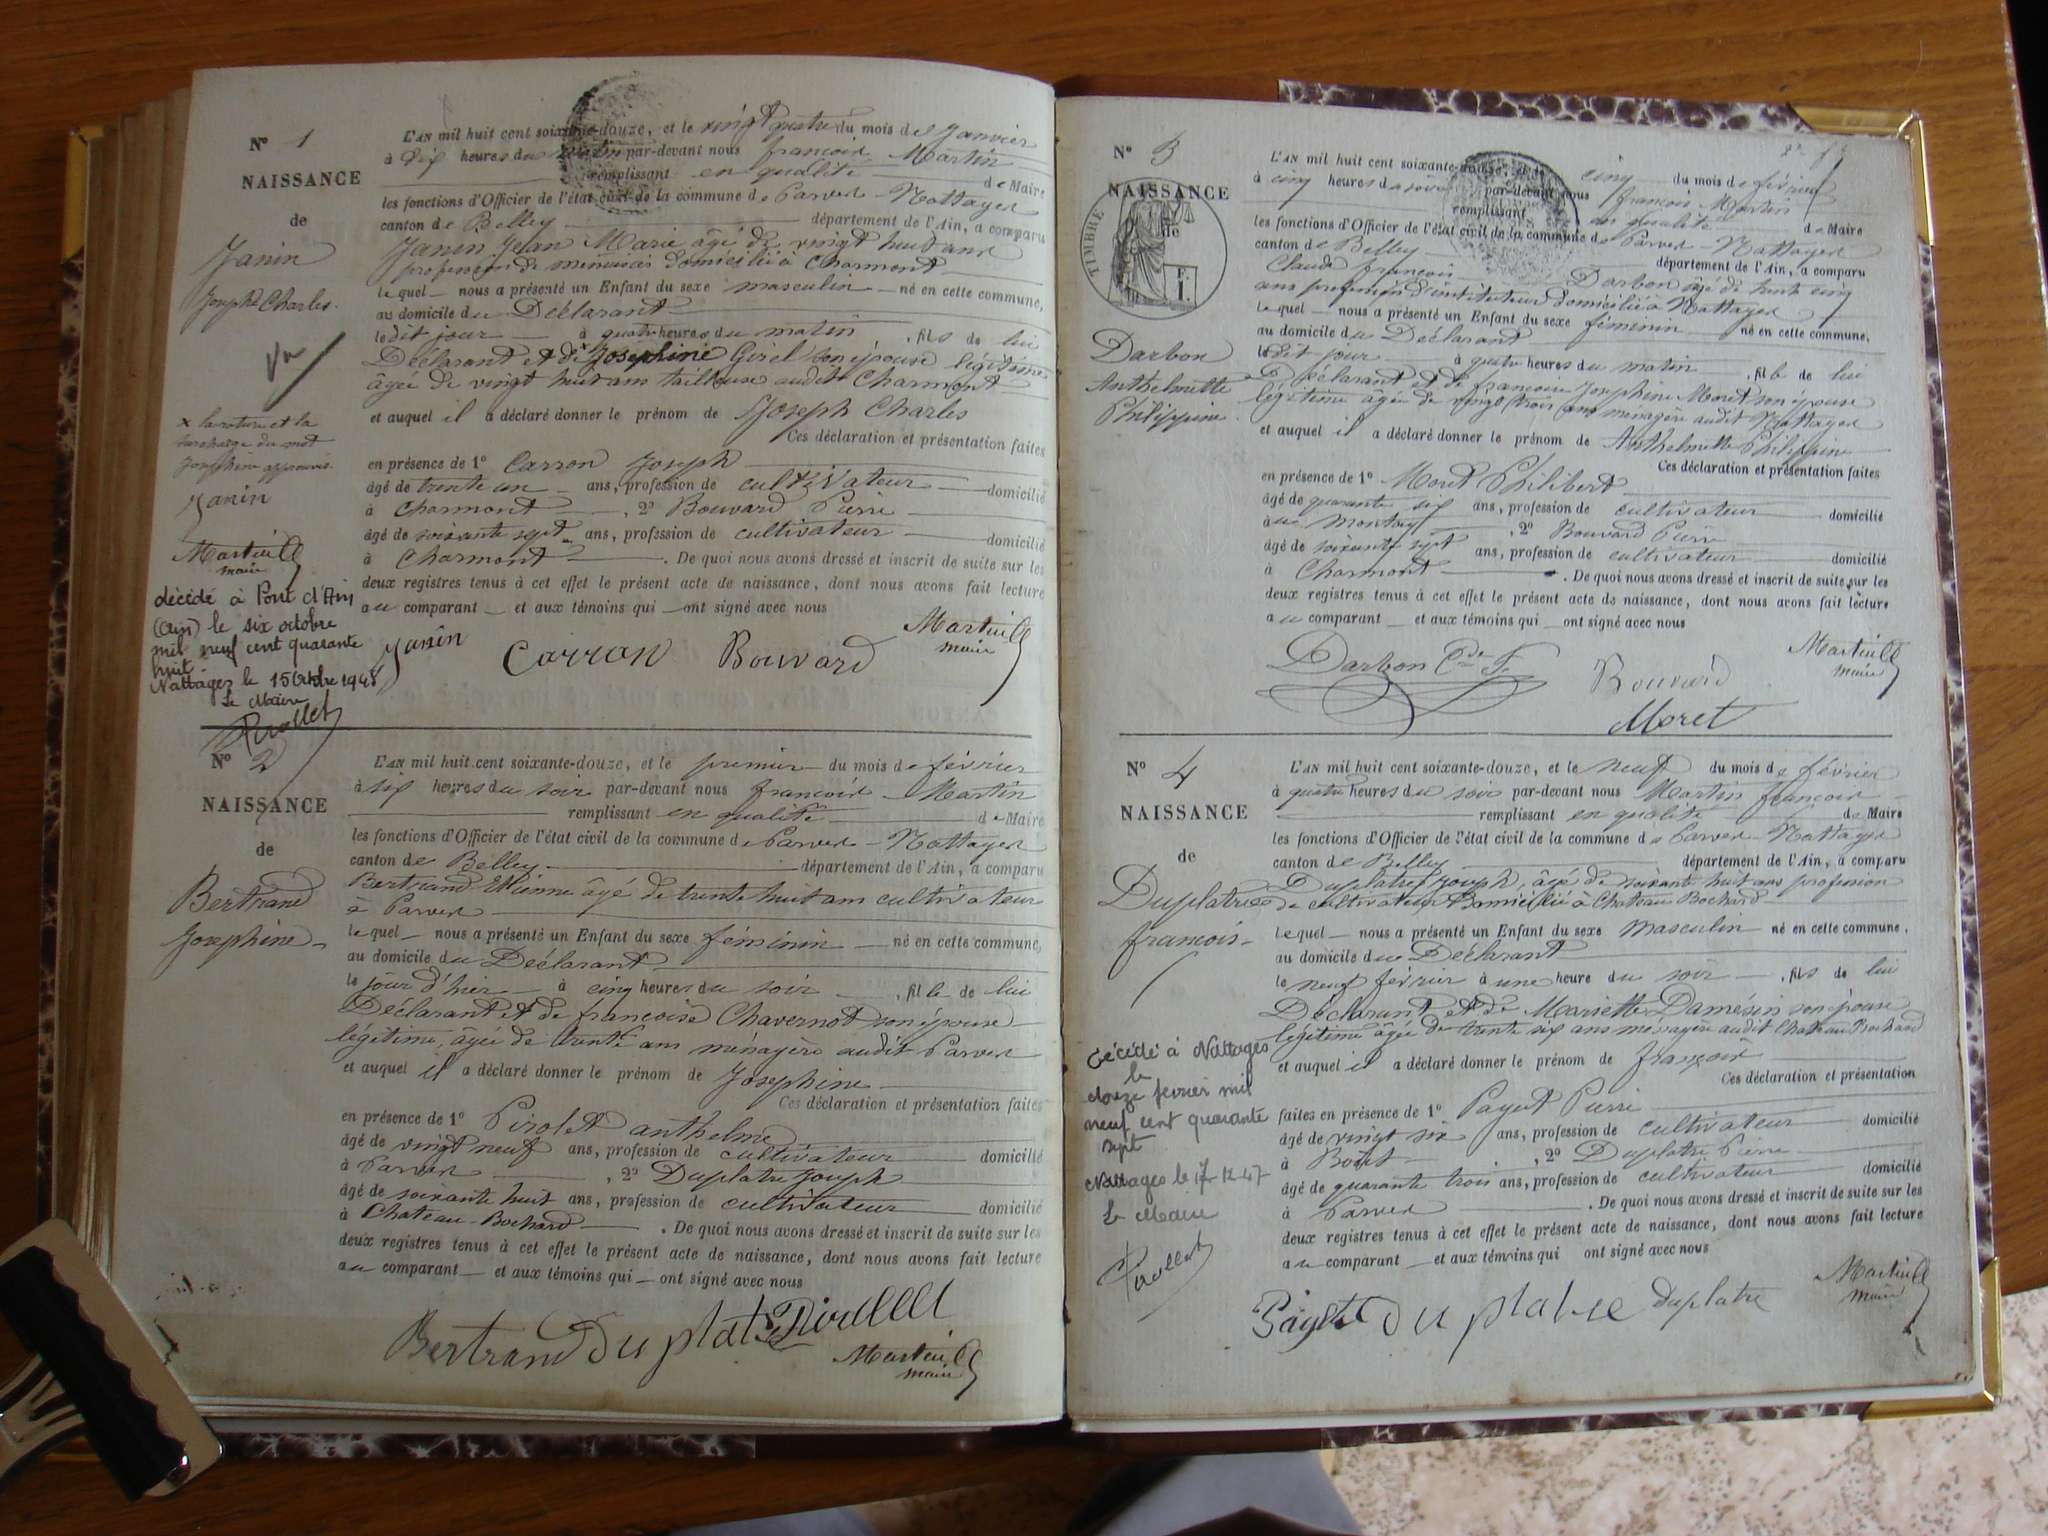 N° 1
NAISSANCE
de
Janin
Joseph Charles.
x la rature et la
surcharge du mot
Josephine approuvés.
Janin
Martin
maire
décédé à Pont d'Ain
(Ain) le six octobre
mil neuf cent quarante
huit
Nattages le 15 Octobre 1948
Le Maire
L'AN mil huit cent soixante-douze, et le vingt quatre du mois de Janvier
à dix heures du matin par-devant nous françois Martin
remplissant en qualité de Maire
les fonctions d'Officier de l'état civil de la commune de Parves-Nattages
canton de Belley département de l'Ain, a comparu
Janin Jean Marie âgé de vingt huit ans
profession de menuisier domicilié à Charmont
lequel nous a présenté un Enfant du sexe masculin né en cette commune,
au domicile du Déclarant
ledit jour à quatre heures du matin, fils de lui
Déclarant et de x Josephine Girel son épouse légitime
âgée de vingt huit ans tailleuse audit Charmont
et auquel il a déclaré donner le prénom de Joseph Charles
Ces déclaration et présentation faites
en présence de 1° Carron Joseph
âgé de trente un ans, profession de cultivateur domicilié
à Charmont, 2° Bouvard Pierre
âgé de soixante sept ans, profession de cultivateur domicilié
à Charmont. De quoi nous avons dressé et inscrit de suite sur les
deux registres tenus à cet effet le présent acte de naissance, dont nous avons fait lecture
au comparant et aux témoins qui ont signé avec nous
Janin Carron Bouvard Martin
maire
N° 2
NAISSANCE
de
Bertrand
Josephine
L'AN mil huit cent soixante-douze, et le premier du mois de février
à six heures du soir par-devant nous françois Martin
remplissant en qualité de Maire
les fonctions d'Officier de l'état civil de la commune de Parves-Nattages
canton de Belley département de l'Ain, a comparu
Bertrand Etienne âgé de trente huit ans cultivateur
à Parves
lequel nous a présenté un Enfant du sexe féminin né en cette commune,
au domicile du Déclarant
le jour d'hier à cinq heures du soir, fille de lui
Déclarant et de françoise Chavernot son épouse
légitime, âgée de trente ans ménagère audit Parves
et auquel il a déclaré donner le prénom de Josephine
Ces déclaration et présentation faites
en présence de 1° Pirolet anthelme
âgé de vingt neuf ans, profession de cultivateur domicilié
à Parves, 2° Duplatre Joseph
âgé de soixante huit ans, profession de cultivateur domicilié
à Chateau-Bochard. De quoi nous avons dressé et inscrit de suite sur les
deux registres tenus à cet effet le présent acte de naissance, dont nous avons fait lecture
au comparant et aux témoins qui ont signé avec nous
Bertrand Duplatre
Martin
maire
N° 3
NAISSANCE
de
TIMBRE
Darbon
Anthelmette
Philippine
L'AN mil huit cent soixante-douze, et le cinq du mois de février
à cinq heures du soir par-devant nous françois Martin
remplissant en qualité de Maire
les fonctions d'Officier de l'état civil de la commune de Parves-Nattages
canton de Belley département de l'Ain, a comparu
Claude françois Darbon âgé de trente cinq
ans profession d'instituteur domicilié à Nattages
lequel nous a présenté un Enfant du sexe féminin né en cette commune,
au domicile du Déclarant
ledit jour à quatre heures du matin, fille de lui
Déclarant et de françoise Josephine Moret son épouse
légitime âgée de vingt trois ans ménagère audit Nattages
et auquel il a déclaré donner le prénom de Anthelmette Philippine
Ces déclaration et présentation faites
en présence de 1° Moret Philibert
âgé de quarante six ans, profession de cultivateur domicilié
au, 2° Bouvard Pierre
âgé de soixante sept ans, profession de cultivateur domicilié
à Charmont. De quoi nous avons dressé et inscrit de suite sur les
deux registres tenus à cet effet le présent acte de naissance, dont nous avons fait lecture
au comparant et aux témoins qui ont signé avec nous
Darbon Cde F. Bouvard Martin
maire
Moret
N° 4
NAISSANCE
de
Duplatre
françois
décédé à Nattages
le
douze février mil
neuf cent quarante
sept
Nattages le
Le Maire
L'AN mil huit cent soixante-douze, et le neuf du mois de février
à quatre heures du soir par-devant nous Martin françois
remplissant en qualité de Maire
les fonctions d'Officier de l'état civil de la commune de Parves-Nattages
canton de Belley département de l'Ain, a comparu
Duplatre Joseph, âgé de soixante huit ans profession
de cultivateur Domicilié à Chateau Bochard
lequel nous a présenté un Enfant du sexe masculin né en cette commune.
au domicile du Déclarant
le neuf février à une heure du soir, fils de lui
Déclarant et de Mariette Damésin son épouse
légitime âgée de trente six ans ménagère audit Chateau Bochard
et auquel il a déclaré donner le prénom de françois
Ces déclaration et présentation
faites en présence de 1° Payet Pierre
âgé de vingt six ans, profession de cultivateur domicilié
à, 2° Duplatre Pierre
âgé de quarante trois ans, profession de cultivateur domicilié
à Parves. De quoi nous avons dressé et inscrit de suite sur les
deux registres tenus à cet effet le présent acte de naissance, dont nous avons fait lecture
au comparant et aux témoins qui ont signé avec nous
Payet Duplatre Duplatre Martin
maire